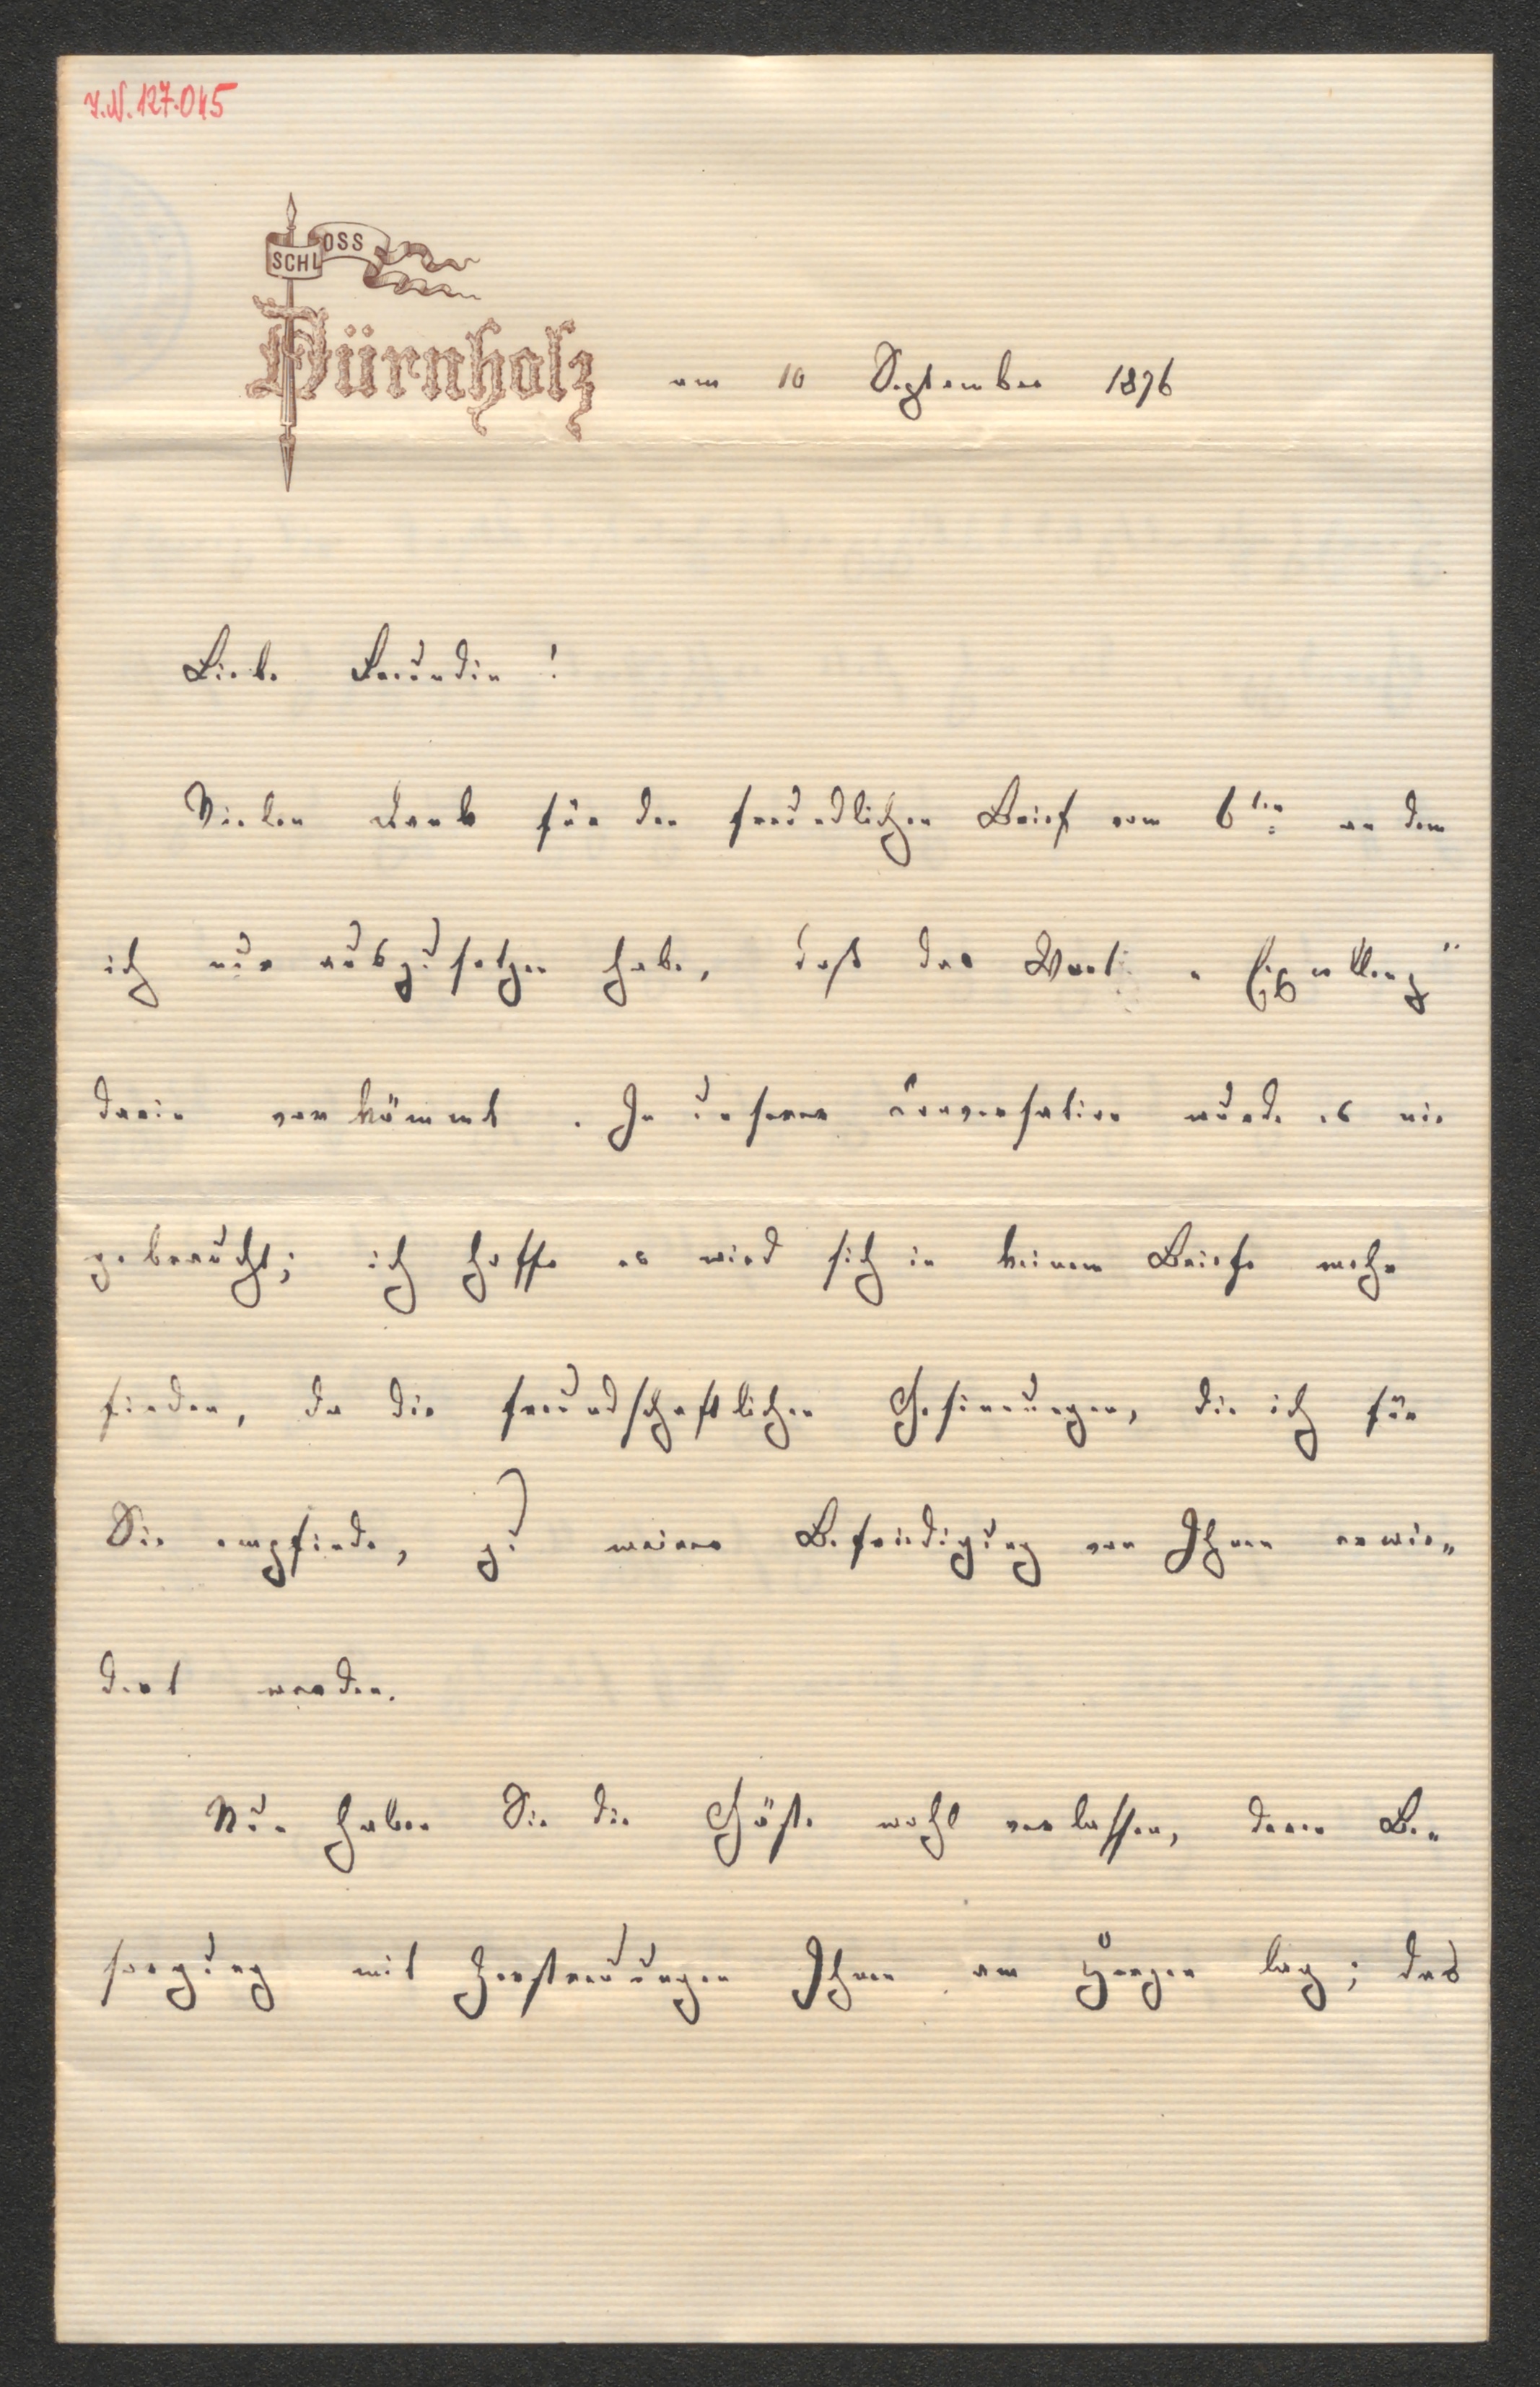 I.N. 127.045
SCHLOSS
Dürnholz am 10 September 1896
Liebe Freundin!
Vielen Dank für den freundlichen Brief vom 6ten an dem
ich nur auszusetzen habe, daß das Wort „Exzellenz"
darin vorkömmt. In unserer Conversation wurde es nie
gebraucht; ich hoffe es wird sich in keinem Briefe mehr
finden, da die freundschaftlichen Gesinnungen, die ich für
Sie empfinde, zu meiner Befriedigung von Ihnen erwie„
dert werden.
Nun haben Sie die Gäste wohl verlassen, deren Be„
sorgung mit Zerstreuungen Ihnen am Herzen lag; das